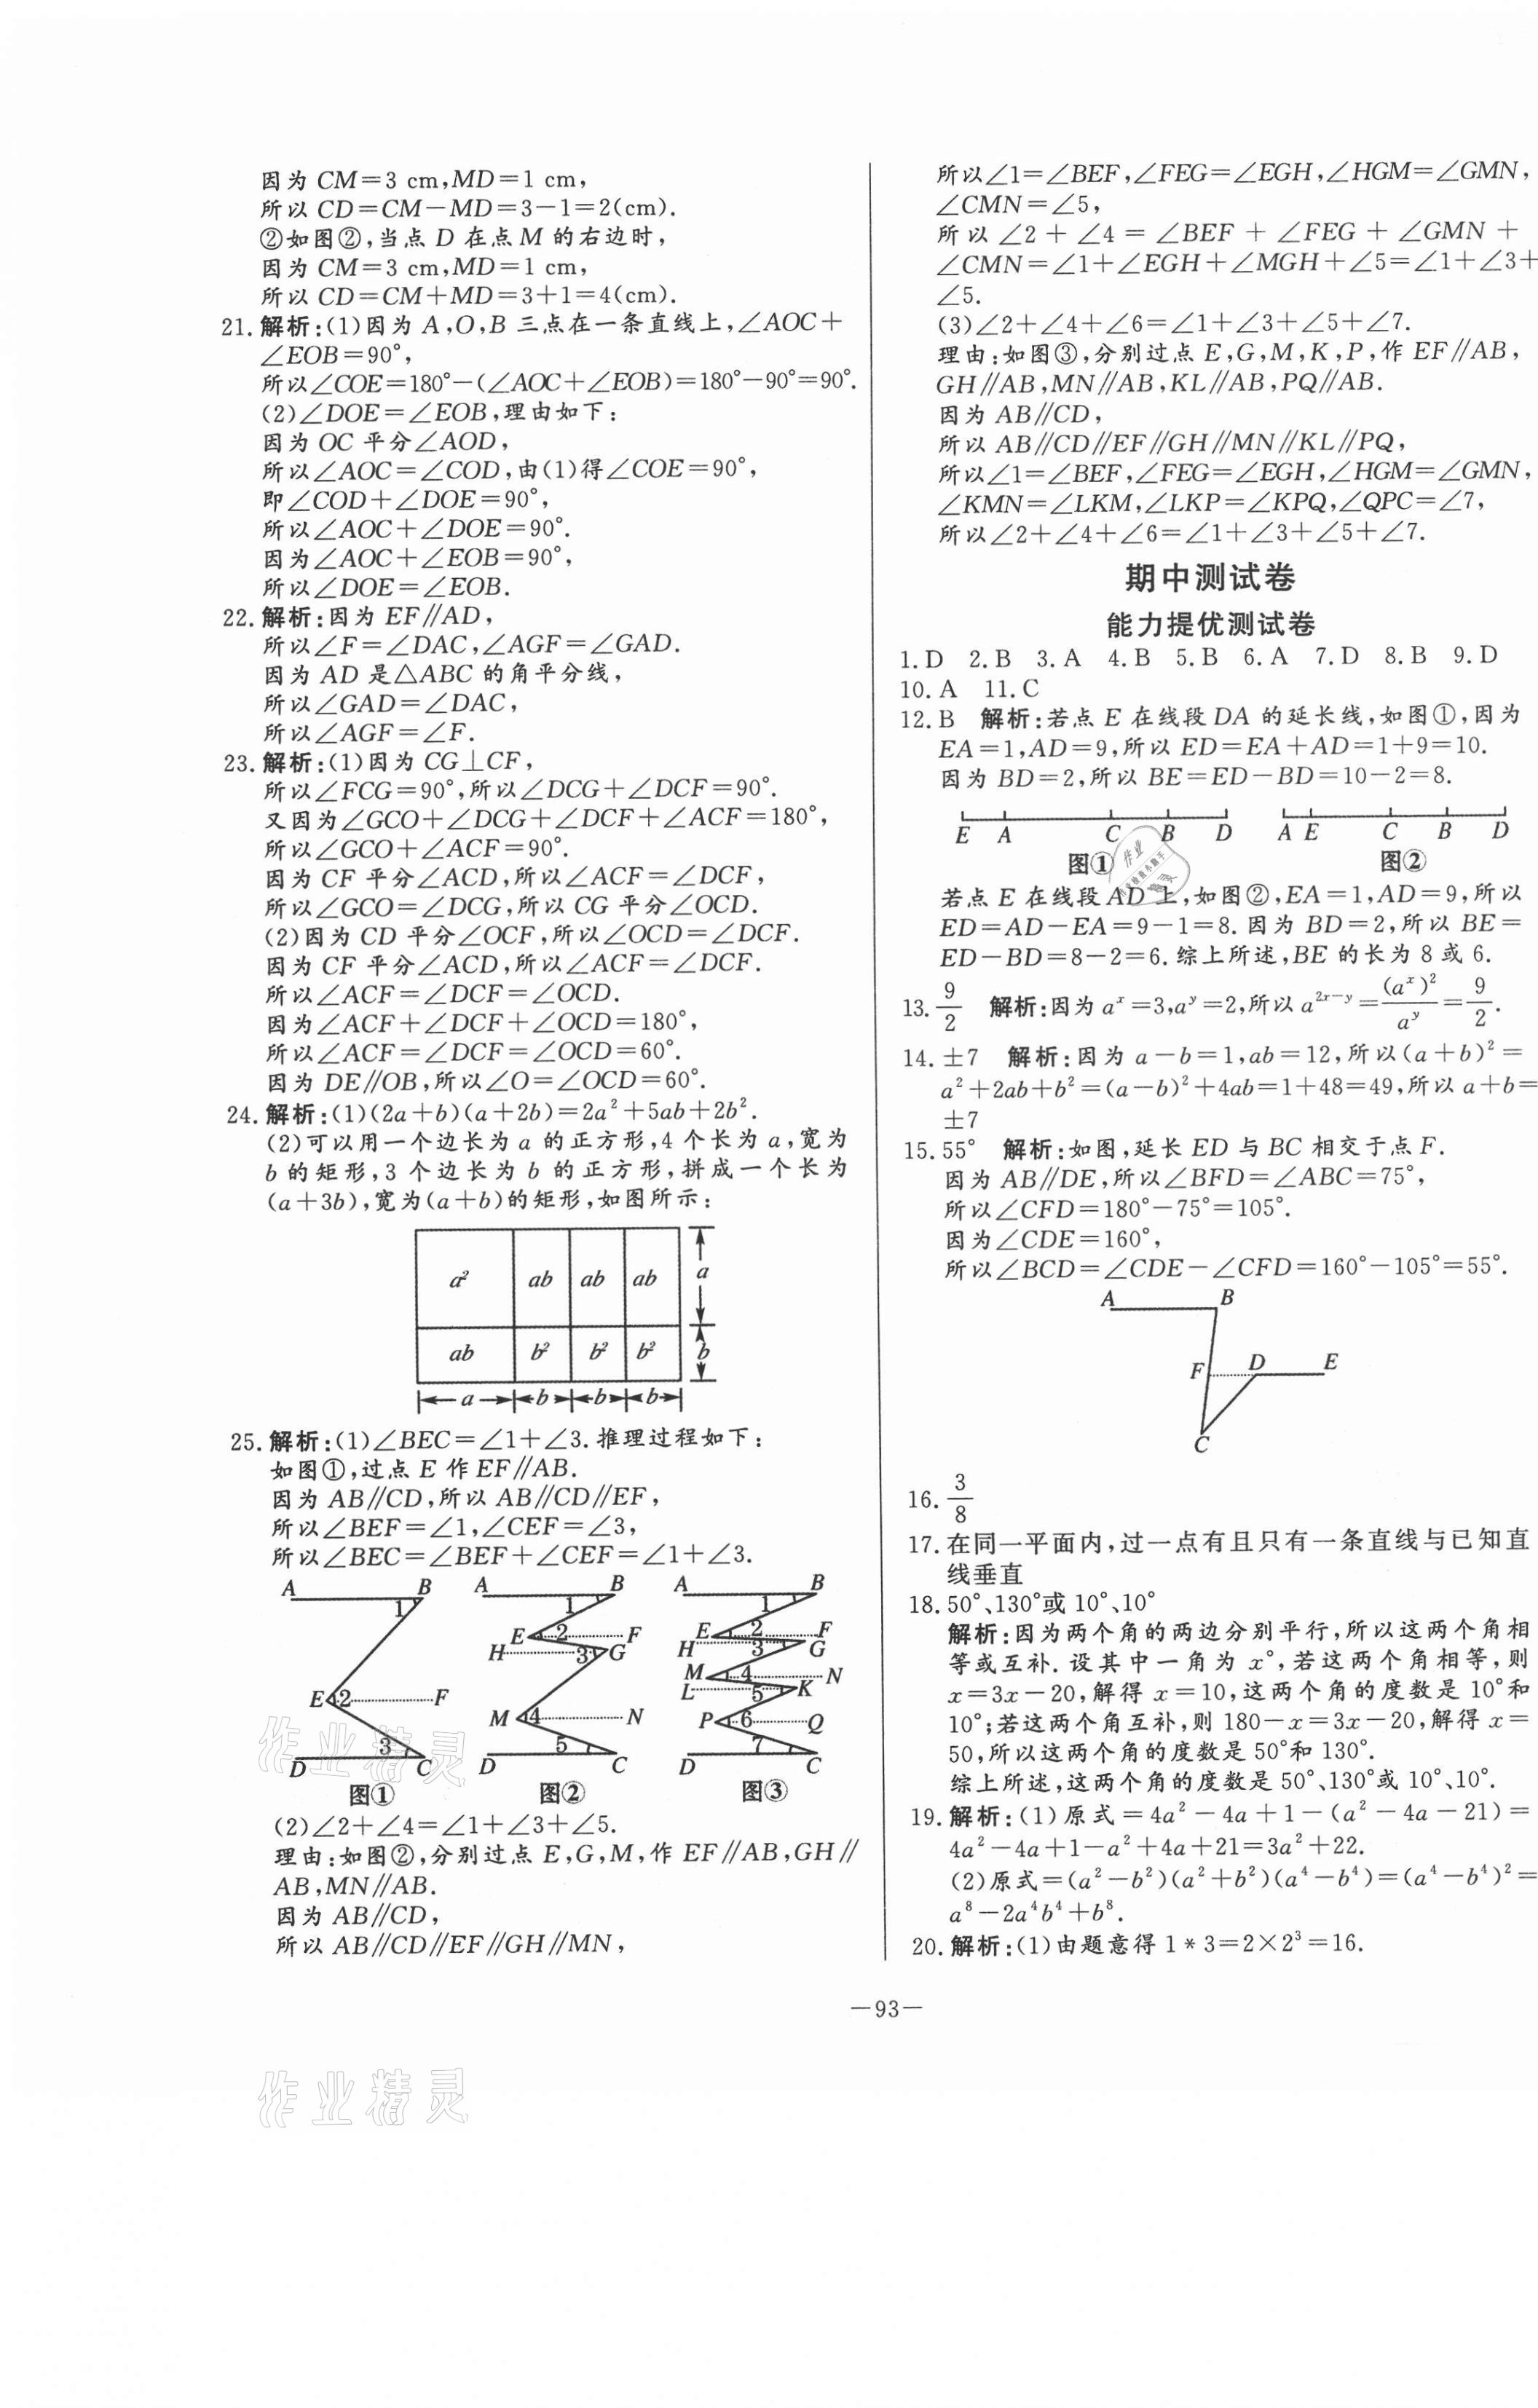 因为 CM=3 cm,MD=1 cm,
所以 CD=CM-MD=3-1=2(cm).
②如图②,当点 D 在点 M 的右边时,
因为 CM=3 cm,MD=1 cm,
所以 CD=CM+MD=3+1=4(cm).
21.解析:(1)因为 A,O,B 三点在一条直线上,∠AOC+
∠EOB=90°,
所以∠COE=180°-(∠AOC+∠EOB)=180°-90°=90°.
(2)∠DOE=∠EOB,理由如下:
因为 OC 平分∠AOD,
所以∠AOC=∠COD,由(1)得∠COE=90°,
即∠COD+∠DOE=90°,
所以∠AOC+∠DOE=90°.
因为∠AOC+∠EOB=90°,
所以∠DOE=∠EOB.
22.解析:因为 EF∥AD,
所以∠F=∠DAC,∠AGF=∠GAD.
因为 AD 是△ABC 的角平分线,
所以∠GAD=∠DAC,
所以∠AGF=∠F.
23.解析:(1)因为 CG⊥CF,
所以∠FCG=90°,所以∠DCG+∠DCF=90°.
又因为∠GCO+∠DCG+∠DCF+∠ACF=180°,
所以∠GCO+∠ACF=90°.
因为 CF 平分∠ACD,所以∠ACF=∠DCF,
所以∠GCO=∠DCG,所以 CG 平分∠OCD.
(2)因为 CD 平分∠OCF,所以∠OCD=∠DCF.
因为 CF 平分∠ACD,所以∠ACF=∠DCF.
所以∠ACF=∠DCF=∠OCD.
因为∠ACF+∠DCF+∠OCD=180°,
所以∠ACF=∠DCF=∠OCD=60°.
因为 DE∥OB,所以∠O=∠OCD=60°.
24.解析:(1)(2a+b)(a+2b)=2a²+5ab+2b².
(2)可以用一个边长为 a 的正方形,4 个长为 a,宽为
b 的矩形,3 个边长为 b 的正方形,拼成一个长为
(a+3b),宽为(a+b)的矩形,如图所示:
a² ab ab ab a
ab b² b² b² b
a b b b
25.解析:(1)∠BEC=∠1+∠3.推理过程如下:
如图①,过点 E 作 EF∥AB.
因为 AB∥CD,所以 AB∥CD∥EF,
所以∠BEF=∠1,∠CEF=∠3,
所以∠BEC=∠BEF+∠CEF=∠1+∠3.
A B 1 E 2 F 3 D C
图①
A B 1 E 2 F H 3 G M 4 N 5 D C
图②
A B 1 E 2 F H 3 G M 4 N L 5 K P 6 Q 7 D C
图③
(2)∠2+∠4=∠1+∠3+∠5.
理由:如图②,分别过点 E,G,M,作 EF∥AB,GH∥
AB,MN∥AB.
因为 AB∥CD,
所以 AB∥CD∥EF∥GH∥MN,
所以∠1=∠BEF,∠FEG=∠EGH,∠HGM=∠GMN,
∠CMN=∠5,
所以 ∠2 + ∠4 = ∠BEF + ∠FEG + ∠GMN +
∠CMN=∠1+∠EGH+∠MGH+∠5=∠1+∠3+
∠5.
(3)∠2+∠4+∠6=∠1+∠3+∠5+∠7.
理由:如图③,分别过点 E,G,M,K,P,作 EF∥AB,
GH∥AB,MN∥AB,KL∥AB,PQ∥AB.
因为 AB∥CD,
所以 AB∥CD∥EF∥GH∥MN∥KL∥PQ,
所以∠1=∠BEF,∠FEG=∠EGH,∠HGM=∠GMN,
∠KMN=∠LKM,∠LKP=∠KPQ,∠QPC=∠7,
所以∠2+∠4+∠6=∠1+∠3+∠5+∠7.
期中测试卷
能力提优测试卷
1.D 2.B 3.A 4.B 5.B 6.A 7.D 8.B 9.D
10.A 11.C
12.B 解析:若点 E 在线段 DA 的延长线,如图①,因为
EA=1,AD=9,所以 ED=EA+AD=1+9=10.
因为 BD=2,所以 BE=ED-BD=10-2=8.
E A C B D A E C B D
图① 图②
若点 E 在线段 AD 上,如图②,EA=1,AD=9,所以
ED=AD-EA=9-1=8.因为 BD=2,所以 BE=
ED-BD=8-2=6.综上所述,BE 的长为 8 或 6.
13. 9/2 解析:因为 aˣ=3,aʸ=2,所以 a²ˣ⁻ʸ=(aˣ)²/aʸ=9/2.
14.±7 解析:因为 a-b=1,ab=12,所以(a+b)²=
a²+2ab+b²=(a-b)²+4ab=1+48=49,所以 a+b=
±7
15.55° 解析:如图,延长 ED 与 BC 相交于点 F.
因为 AB∥DE,所以∠BFD=∠ABC=75°,
所以∠CFD=180°-75°=105°.
因为∠CDE=160°,
所以∠BCD=∠CDE-∠CFD=160°-105°=55°.
A B
F D E
C
16. 3/8
17.在同一平面内,过一点有且只有一条直线与已知直
线垂直
18.50°、130°或 10°、10°
解析:因为两个角的两边分别平行,所以这两个角相
等或互补.设其中一角为 x°,若这两个角相等,则
x=3x-20,解得 x=10,这两个角的度数是 10°和
10°;若这两个角互补,则 180-x=3x-20,解得 x=
50,所以这两个角的度数是 50°和 130°.
综上所述,这两个角的度数是 50°、130°或 10°、10°.
19.解析:(1)原式=4a²-4a+1-(a²-4a-21)=
4a²-4a+1-a²+4a+21=3a²+22.
(2)原式=(a²-b²)(a²+b²)(a⁴-b⁴)=(a⁴-b⁴)²=
a⁸-2a⁴b⁴+b⁸.
20.解析:(1)由题意得 1*3=2×2³=16.
—93—
作业精灵
作业精灵